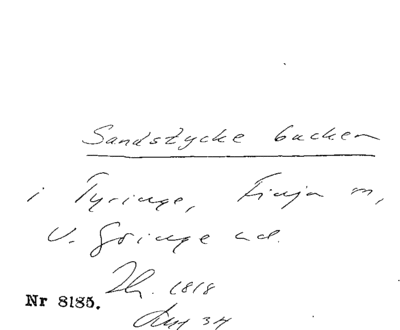 Sandstycke backen
i Tyringe, Finja sn,
V. Göinge hd.
1818
Nr 8185.
34